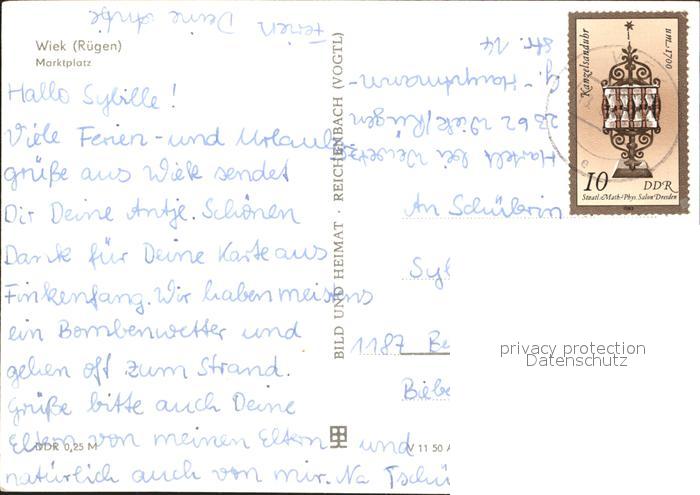 Wiek (Rügen)
Marktplatz
Hallo Sybille!
Viele Ferien- und Urlaubs
grüße aus Wiek sendet
Dir Deine Antje. Schönen
Dank für Deine Karte aus
Finkenfang. Wir haben meistens
ein Bombenwetter und
gehen oft zum Strand.
Grüße bitte auch Deine
Eltern von meinen Eltern und
natürlich auch von mir. Na Tschü
Ferien Deine
DDR 0,25 M
BILD UND HEIMAT · REICHENBACH (VOGTL)
V 11 50 A
bei
2362 Wiek/Rügen
G.-Hauptmann-
Str. 14
An Schülerin
Syb
1187 Be
Kanzelsanduhr
um 1700
10 DDR
Staatl. Math.-Phys. Salon Dresden
1983
privacy protection
Datenschutz